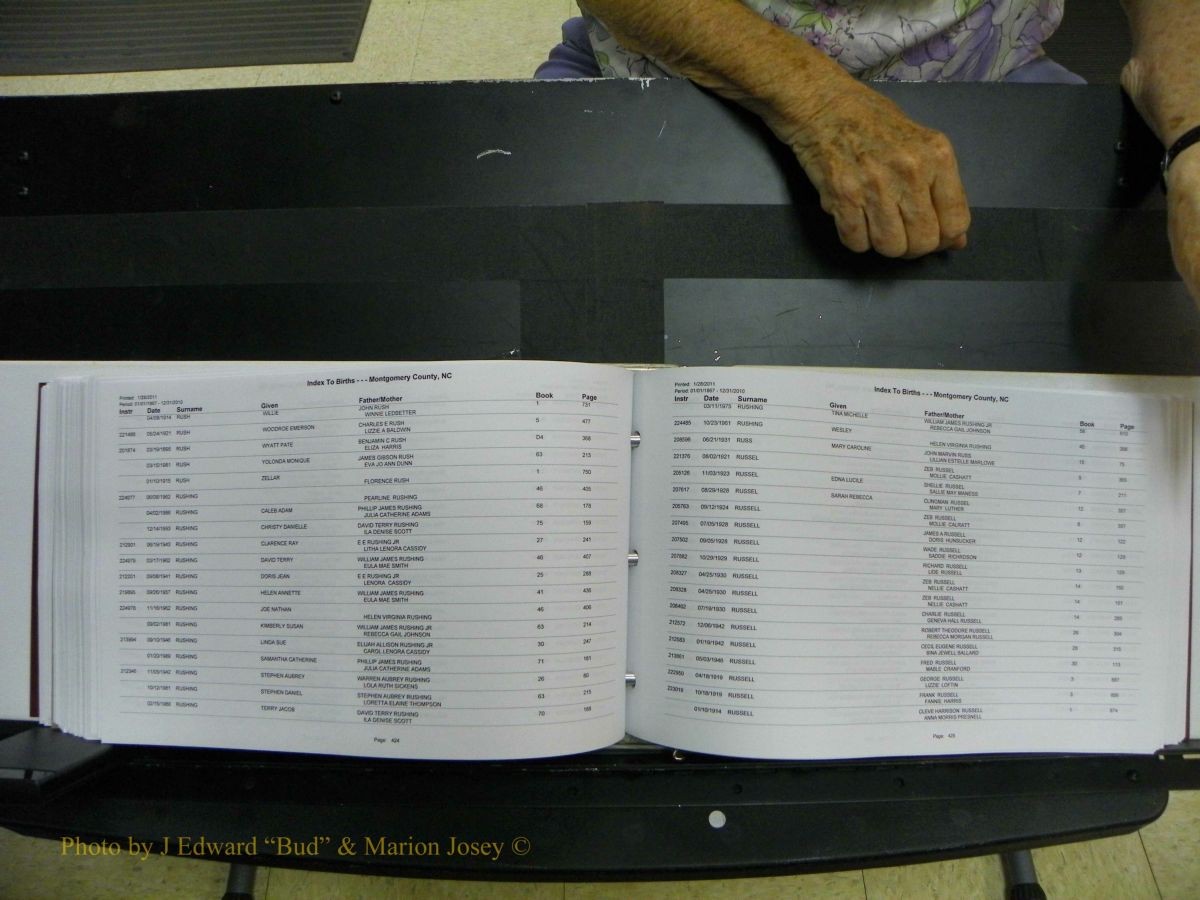 Index To Births - - - Montgomery County, NC
Printed: 1/28/2011
Period: 01/01/1867 - 12/31/2010
Instr Date Surname Given Father/Mother Book Page
04/09/1914 RUSH WILLIE JOHN RUSH 1 751
WINNIE LEDBETTER
221488 05/24/1921 RUSH WOODROE EMERSON CHARLES E RUSH 5 477
LIZZIE A BALDWIN
201874 RUSH WYATT PATE BENJAMIN C RUSH D4 368
ELIZA HARRIS
03/15/1981 RUSH YOLONDA MONIQUE JAMES GIBSON RUSH 63 213
EVA JO ANN DUNN
01/10/1915 RUSH ZELLAR 1 750
FLORENCE RUSH
224977 RUSHING 46 405
PEARLINE RUSHING
04/02/1986 RUSHING CALEB ADAM PHILLIP JAMES RUSHING 68 178
JULIA CATHERINE ADAMS
12/14/1993 RUSHING CHRISTY DANIELLE DAVID TERRY RUSHING 75 159
ILA DENISE SCOTT
212901 06/19/1943 RUSHING CLARENCE RAY E E RUSHING JR 27 241
LITHA LENORA CASSIDY
224979 03/17/1962 RUSHING DAVID TERRY WILLIAM JAMES RUSHING 46 407
EULA MAE SMITH
212201 09/08/1941 RUSHING DORIS JEAN E E RUSHING JR 25 268
LENORA CASSIDY
219895 09/26/1957 RUSHING HELEN ANNETTE WILLIAM JAMES RUSHING 41 436
EULA MAE SMITH
224978 11/16/1962 RUSHING JOE NATHAN 46 406
HELEN VIRGINIA RUSHING
09/22/1981 RUSHING KIMBERLY SUSAN WILLIAM JAMES RUSHING JR 63 214
REBECCA GAIL JOHNSON
213994 09/10/1946 RUSHING LINDA SUE ELIJAH ALLISON RUSHING JR 30 247
CAROL LENORA CASSIDY
01/20/1989 RUSHING SAMANTHA CATHERINE PHILLIP JAMES RUSHING 71 161
JULIA CATHERINE ADAMS
212946 11/05/1942 RUSHING STEPHEN AUBREY WARREN AUBREY RUSHING 26 80
LOLA RUTH SICKENS
10/12/1981 RUSHING STEPHEN DANIEL STEPHEN AUBREY RUSHING 63 215
LORETTA ELAINE THOMPSON
02/15/1988 RUSHING TERRY JACOB DAVID TERRY RUSHING 70 168
ILA DENISE SCOTT
Page: 424
Index To Births - - - Montgomery County, NC
Printed: 1/28/2011
Period: 01/01/1867 - 12/31/2010
Instr Date Surname Given Father/Mother Book Page
03/11/1975 RUSHING TINA MICHELLE WILLIAM JAMES RUSHING JR
REBECCA GAIL JOHNSON
224485 10/23/1961 RUSHING WESLEY 45
HELEN VIRGINIA RUSHING
208596 06/21/1931 RUSS MARY CAROLINE JOHN MARVIN RUSS 15 75
LILLIAN ESTELLE MARLOWE
221376 08/02/1921 RUSSEL ZEB RUSSEL 5
MOLLIE CASHATT
205126 11/03/1923 RUSSEL EDNA LUCILE SHELLIE RUSSEL 7 211
SALLIE MAY MANESS
207617 08/29/1928 RUSSEL SARAH REBECCA CLINGMAN RUSSEL 12
MARY LUTHER
205763 09/12/1924 RUSSELL ZEB RUSSELL 8
MOLLIE CALRATT
207495 07/05/1928 RUSSELL JAMES A RUSSELL 12 122
DORIS HUNSUCKER
207502 09/05/1928 RUSSELL WADE RUSSELL 12 129
SADDIE RICHRDSON
207882 10/29/1929 RUSSELL RICHARD RUSSELL 13
LIDE RUSSELL
208327 04/25/1930 RUSSELL ZEB RUSSELL 14
NELLIE CASHATT
208328 04/25/1930 RUSSELL ZEB RUSSELL 14
NELLIE CASHATT
208462 07/19/1930 RUSSELL CHARLIE RUSSELL 14
GENEVA HALL RUSSELL
212572 12/06/1942 RUSSELL ROBERT THEODORE RUSSELL 26
REBECCA MORGAN RUSSELL
212583 01/19/1942 RUSSELL CECIL EUGENE RUSSELL
SINA JEWELL BALLARD
213861 05/03/1946 RUSSELL FRED RUSSELL 30 113
MABLE CRANFORD
222950 04/18/1919 RUSSELL GEORGE RUSSELL 3
LIZZIE LOFTIN
223019 10/18/1919 RUSSELL FRANK RUSSELL 3
FANNIE HARRIS
01/10/1914 RUSSELL CLEVE HARRISON RUSSELL 1 874
ANNA MORRIS PRESNELL
Page: 425
Photo by J Edward “Bud” & Marion Josey ©